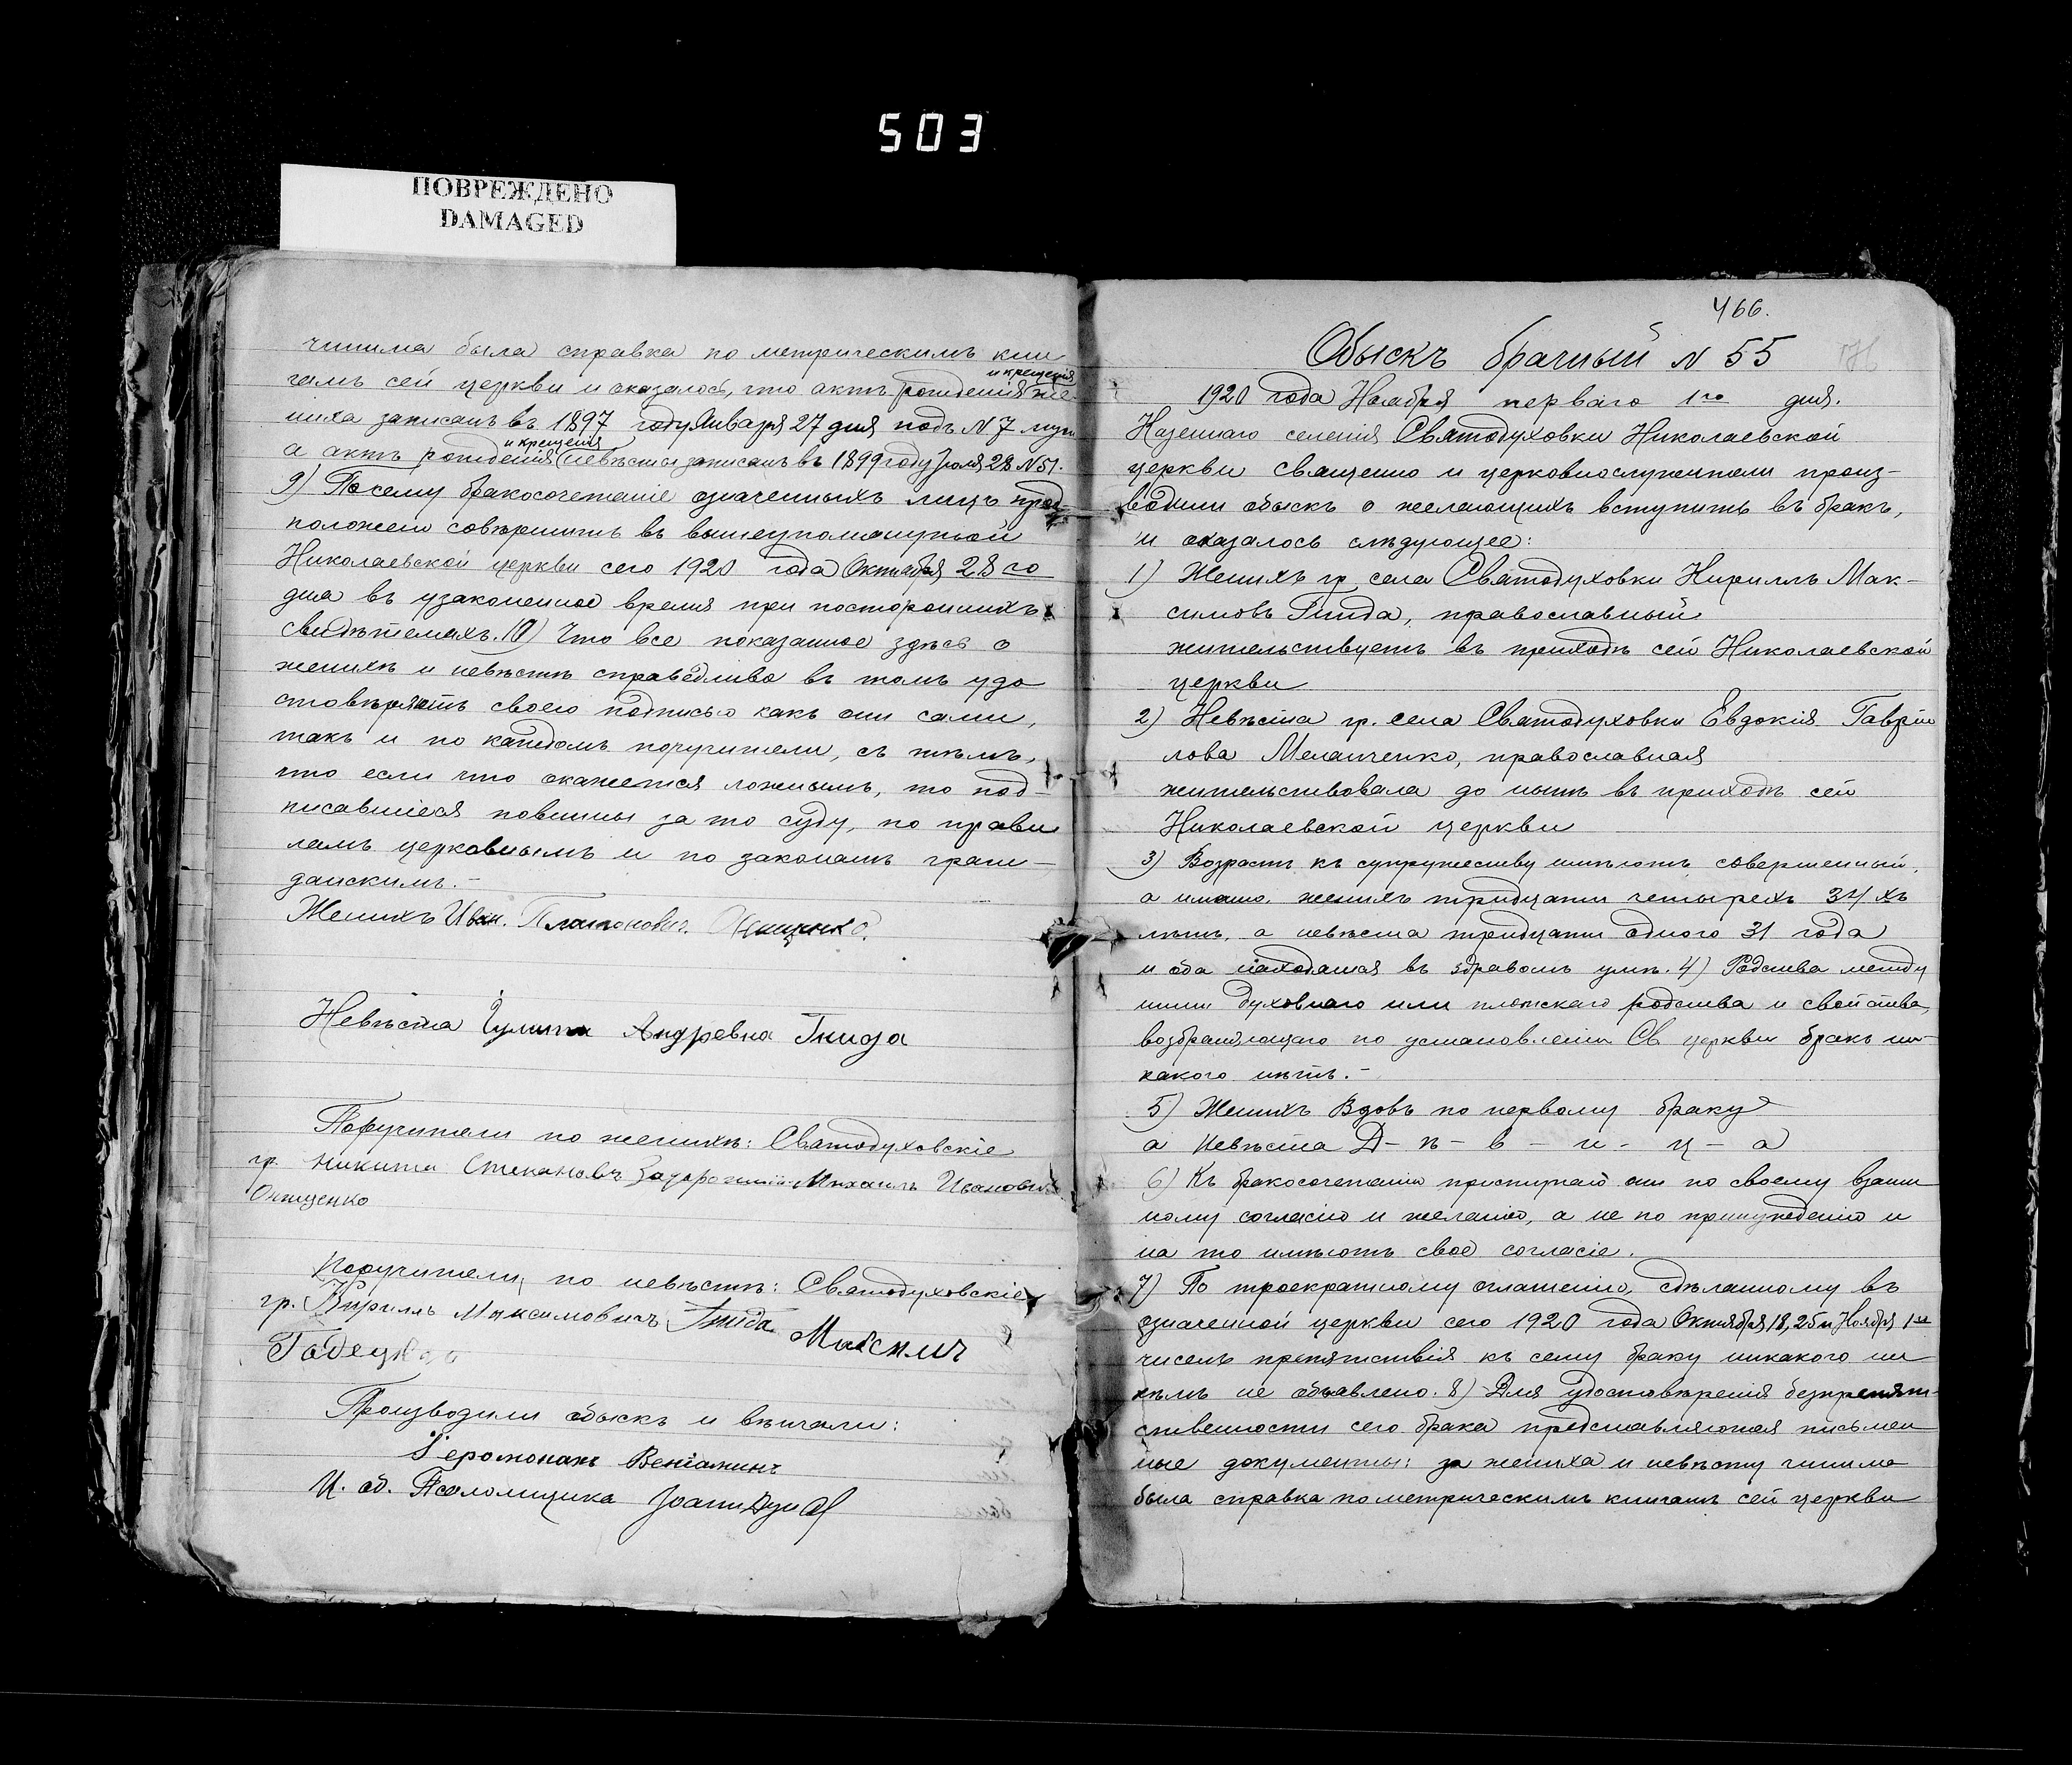 503
ПОВРЕЖДЕНО
DAMAGED
чинима была справка по метрическимъ кни
гамъ сей церкви и оказалось, что актъ рожденія и крещенія же-
ниха записанъ въ 1897 году Января 27 дня подъ N 7 муж
а актъ рожденія и крещенія невѣсты записанъ въ 1899 году Іюля 28 N 51.
9) Посему бракосочетаніе означенныхъ лицъ пред
положено совѣршить въ вышеупомянутой
Николаевской церкви сего 1920 года Октября 28 го
дня въ узаконенное время при постороннихъ
свидѣтеляхъ. 10) Что все показанное здѣсь о
женихѣ и невѣстѣ справедливо въ томъ удо
стовѣряютъ своею подписью какъ они сами,
такъ и по каждомъ поручители, съ тѣмъ,
что если что окажется ложнымъ, то под
писавшіеся повинны за то суду, по прави
ламъ церковнымъ и по законамъ граж-
данскимъ.-
Женихъ Иван. Платонович. Онищенко.
Невѣста Андревна Гнида
Поручители по женихѣ: Святодуховскіе
гр. Никита Степановъ Задорожній Михаилъ Ивановичъ
Онищенко
Поручители по невѣстѣ: Святодуховскіе
гр. Кирилль Максимовичъ Гнида Максимъ
Производили обыскъ и вѣнчали:
Іеромонахъ Веніаминъ
И. об. Псаломщика Іоаннъ
466.
Обыскъ брачный N 55
1920 года Ноября перваго 1го дня.
Казеннаго селенія Святодуховки Николаевской
церкви священно и церковнослужители произ-
водили обыскъ о желающихъ вступить въ бракъ,
и оказалось слѣдующее:
1) Женихъ гр. села Святодуховки Кириллъ Мак-
симовъ Гнида, православный
жительствуетъ въ приходѣ сей Николаевской
церкви
2) Невѣста гр. села Святодуховки Евдокія Гаврiи
лова Меланченко, православная
жительствовала до нынѣ въ приходѣ сей
Николаевской церкви
3) Возрастъ къ супружеству имѣютъ совершенный,
а имено. женихъ тридцати четырехъ 34 хъ
лѣтъ, а невѣста тридцати одного 31 года
и оба находятся въ здравомъ умѣ. 4) Родства между
ними духовнаго или плотскаго родства и свойства,
возбраняющаго по установленію Св. церкви бракъ ни-
какого нѣтъ.-
5) Женихъ Вдовъ по первому браку
а Невѣста Д - ѣ - в - и - ц - а
6) Къ бракосочетанію приступаютъ они по своему взаим
ному согласію и желанію, а не по принужденію и
на то имѣютъ своё согласіе.
7) По троекратному оглашенію, сдѣланному въ
означенной церкви сего 1920 года Октября 18, 25 и Ноября 1го
числъ препятствія къ сему браку никакого ни
кѣмъ не объявлено. 8) Для удостовѣренія безпрепят-
ственности сего брака представляются письмен
ные документы: за жениха и невѣсту чинима
была справка по метрическимъ книгамъ сей церкви